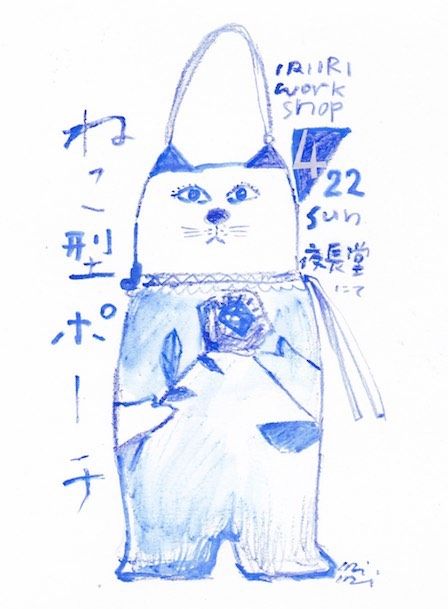 ねこ型ポーチ
IRIIRI
work
shop
4
22
sun
夜長堂
にて
iRi
iRi